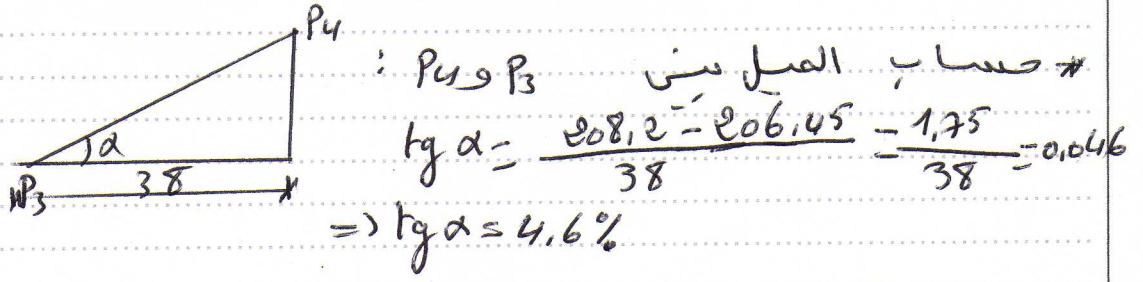 P4
* حساب الميل بين P3 و P4 :
α
tg α = (208,2 - 206,45) / 38 = 1,75 / 38 = 0,046
38
P3
=> tg α = 4,6%